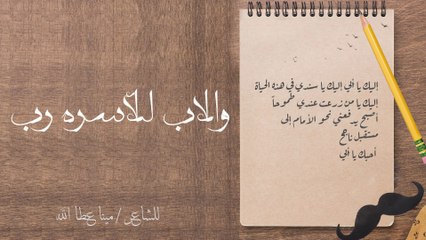 والاب للأسره رب
للشاعر / مينا عطا الله
إليك يا أبي إليك يا سندي في هذه الحياة
إليك يا من زرعت عندي طموحاً
أصبح يدفعني نحو الأمام إلى
مستقبل ناجح
أحبك يا ابي